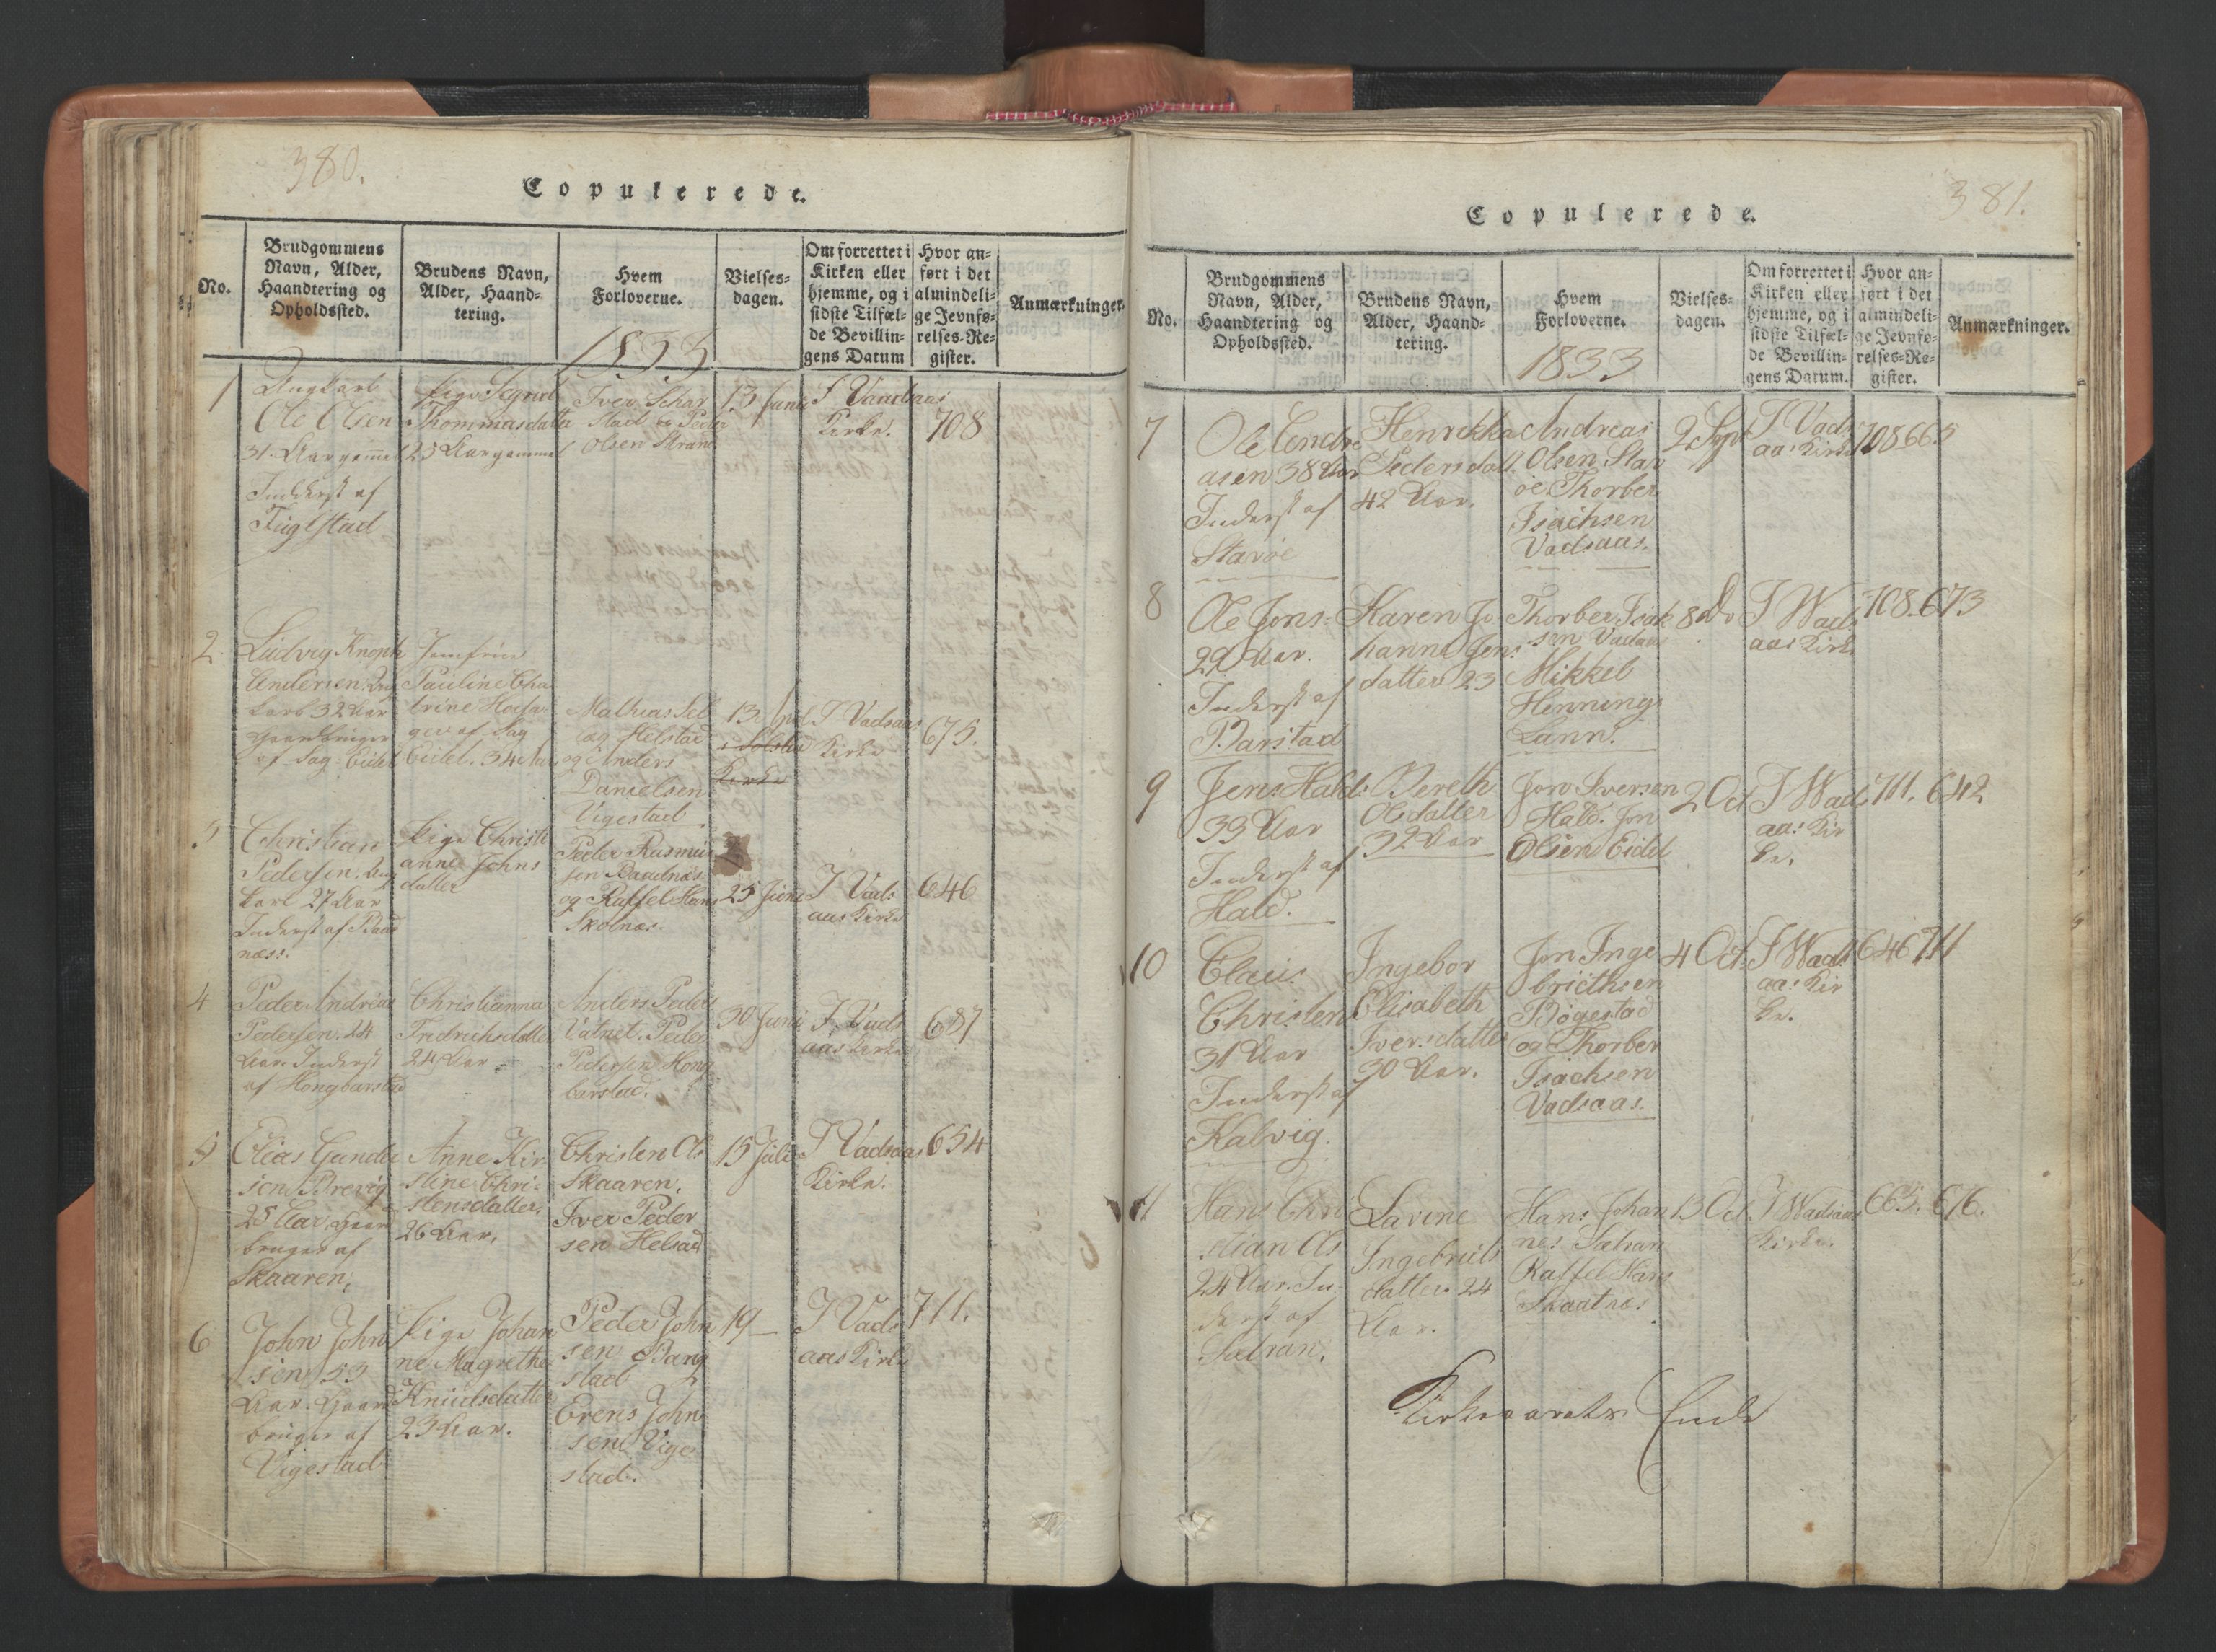 380.
Copulerede.
No.
Brudgommens
Navn, Alder,
Haandtering og
Opholdssted.
Brudens Navn,
Alder, Haand-
tering.
Hvem
Forloverne.
1833
Vielses-
dagen.
Om forrettet i
Kirken eller
hjemme, og i
sidste Tilfæl-
de Bevillin-
gens Datum
Hvor an-
ført i det
almindeli-
ge Jevnfø-
relses-Re-
gister.
Anmærkninger.
1
Ungkarl
Ole Olsen
31 Aar gammel
Inderst af
Fuglstad
Pige Segrid
Thommasdatter
23 Aar gammel
Iver Schar
stad og Peder
Olsen Strand
13 Juni
I Vadsaas
Kirke.
708
2
Ludvig Knoph
Andersen. Ung
karl 32 Aar
Gaardbruger
af Sag Eidet
Jomfrue
Pauline Cha
trine
af Sag
Eidet. 34 Aar
Mathias Sel
og Helstad
og Anders
Danielsen
Vigestad
13
Kirke
I Vadsaas
Kirke
675.
3
Christian
Pedersen. Ung
karl 27 Aar
Inderst af Baad
næs.
Pige Christi
anna Johns
datter
Peder Rasmus
sen Baadnæs
og Raffel Hans
Skolnæs.
25 Juni
I Vads
aas Kirke
646
4
Peder Andreas
Pedersen. 24
Aar Inderst
af Hongbarstad
Christianna
Fredrichsdatter
24 Aar
Anders Peders
Vatnet. Peder
Pedersen Hong
barstad.
30 Juni
I Vads
aas Kirke
687
5
Elias Gunder
sen Brevig
25 Aar. Gaard
bruger af
Skaaren,
Anne Kir
stine Chri-
stensdatter,
26 Aar,
Christen Ols
Skaaren,
Iver Peder
sen Helsad
15 Juli
I Vadsaas
Kirke.
654
6
John John
sen 53
Aar. Gaard
bruger af
Vigestad
Pige Johan
ne Magrethe
Knudsdatter
23 Aar.
Peder John
sen Bang
stad
Erens John
sen Vige
stad.
19 —
I Vads
aas Kirke
711.
381.
Copulerede.
No.
Brudgommens
Navn, Alder,
Haandtering og
Opholdssted.
Brudens Navn,
Alder, Haand-
tering.
Hvem
Forloverne.
1833
Vielses-
dagen.
Om forrettet i
Kirken eller
hjemme, og i
sidste Tilfæl-
de Bevillin-
gens Datum.
Hvor an-
ført i det
almindeli-
ge Jevnfø-
relses-Re-
gister.
Anmærkninger.
7
Ole Endre
asen 38 Aar
Inderst af
Starøe
Henrikka
Pedersdatt.
42 Aar.
Andreas
Olsen Star
øe. Thorber
Isachsen
Vadsaas.
2 Sept
I Vads
aas Kirke
708 665
8
Ole Jons-
29 Aar.
Inderst af
Barstad
Karen Jo
hanna Jens
datter 23
Thorber Isak
sen Vadsaas
Mikkel
Hennings
Lann.
8 Do
I Wads
aas Kirke
708. 673
9
Jens Hald:
33 Aar
Inderst af
Hald.
Bereth
Olsdatter
32 Aar
Jon Iversen
Hald. Jon
Olsen Eidet
2 Oct
I Wads
aas Kir
ke.
711. 642
10
Claus
Christens
31 Aar
Inderst af
Kalvig.
Ingebor
Elisabeth
Iversdatter
30 Aar.
Jon Inge
bricthsen
Bøgestad
og Thorber
Isachsen
Vadsaas.
4 Oct.
I Wads
aas Kir
ke.
646 711
11
Hans Chri
stian Ols
24 Aar. In
derst af
Satran,
Lavine
Ingebrits
datter 24
Aar.
Hans Johan
nes Satran
Raffel Hans
13 Oct.
I Wadsaas
Kirke.
663. 676.
Kirkeaarets Ende